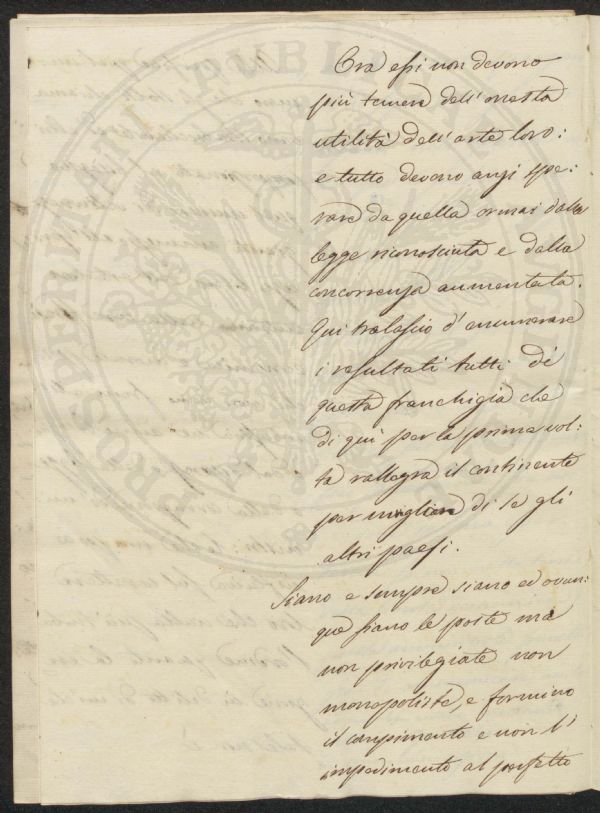 Ora essi non devono
più temere dell'onesta
utilità dell'arte loro:
e tutto devono anzi spe:
rare da quella ormai dalla
legge riconosciuta e dalla
concorrenza aumentata.
Qui tralascio d'enumerare
i resultati tutti di
questa franchigia che
di qui per la prima vol:
ta rallegra il continente
per di se gli
altri paesi.
Siano e sempre siano ed ovun:
que siano le poste ma
non privilegiate non
monopoliste, e formino
il compimento e non l'
impedimento al perfetto